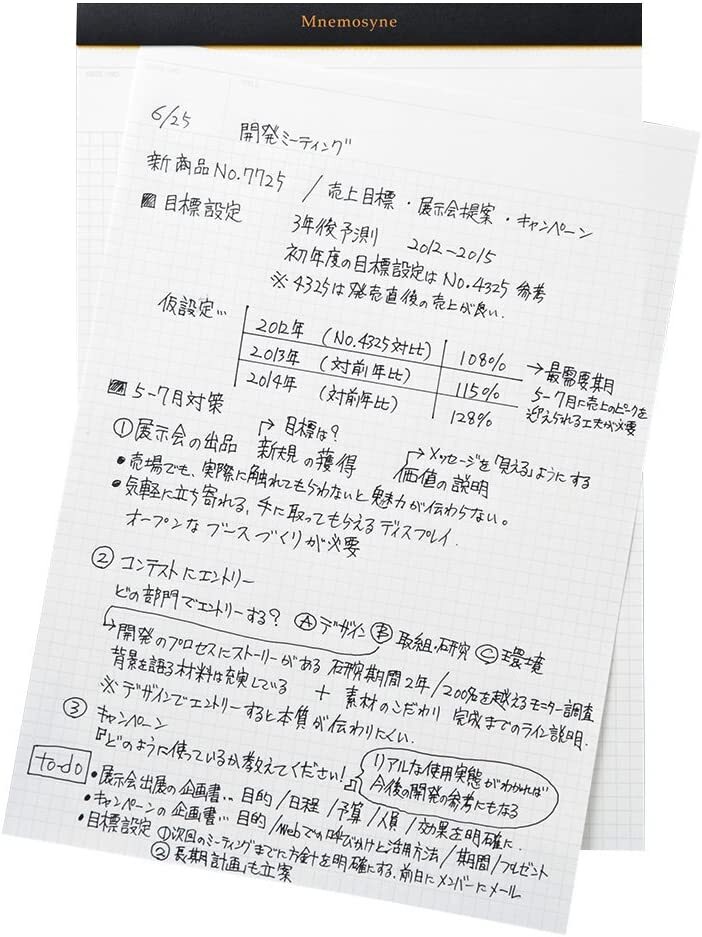 Mnemosyne
6/25 開発ミーティング
新商品No.7725 / 売上目標・展示会提案・キャンペーン
目標設定 3年後予測 2012-2015
初年度の目標設定はNo.4325参考
※4325は発売直後の売上が良い.
仮設定…
2012年 (No.4325対比) 108%
2013年 (対前年比) 115%
2014年 (対前年比) 128%
→最需要期
5-7月に売上のピークを
迎えられる工夫が必要
5-7月対策
①展示会の出品 新規の獲得 価値の説明
目標は?
メッセージを「見える」ようにする
・売場でも、実際に触れてもらわないと魅力が伝わらない。
・気軽に立ち寄れる、手に取ってもらえるディスプレイ.
オープンなブースづくりが必要
②コンテストにエントリー
どの部門でエントリーする? Ⓐデザイン Ⓑ取組・研究 Ⓒ環境
→開発のプロセスにストーリーがある 研究期間2年/200名を越えるモニター調査
背景を語る材料は充実している + 素材のこだわり 完成までのライン説明.
※デザインでエントリーすると本質が伝わりにくい.
③キャンペーン
『どのように使っているか教えてください!』
リアルな使用実態がわかれば
今後の開発の参考にもなる
to-do
・展示会出展の企画書… 目的/日程/予算/人員/効果を明確に.
・キャンペーンの企画書… 目的/Webでの呼びかけと活用方法/期間/プレゼント
・目標設定 ①次回のミーティングまでに方針を明確にする.前日にメンバーにメール
②「長期計画」も立案